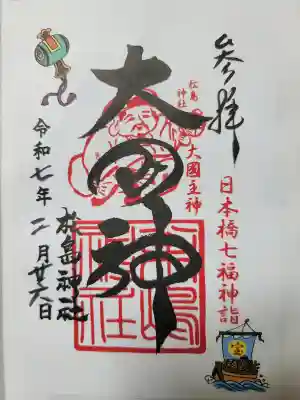 参拝
日本橋七福神詣
松島
神社
大國主神
大国神
松島神社
松島神社
令和七年二月廿六日
宝